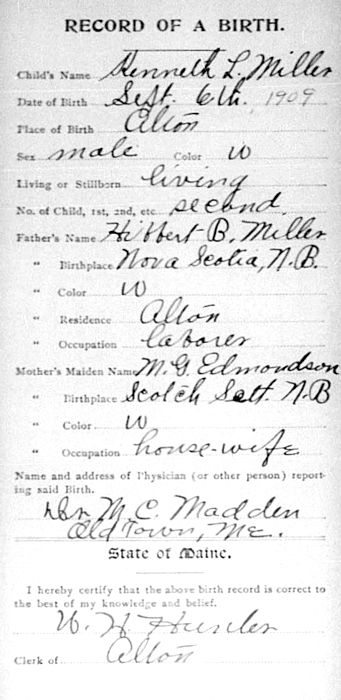 RECORD OF A BIRTH.
Child's Name Kenneth L. Miller
Date of Birth Sept. 6th, 1909
Place of Birth Alton
Sex male Color W
Living or Stillborn living
No. of Child, 1st, 2nd, etc. second
Father's Name Hibbert B. Miller
" Birthplace Nova Scotia, N.B.
" Color W
" Residence Alton
" Occupation laborer
Mother's Maiden Name M. G. Edmondson
" Birthplace Scotch Sett. N.B
" Color W
" Occupation house-wife
Name and address of Physician (or other person) report-
ing said Birth.
Dr. M. C. Madden
Old Town, Me.
State of Maine.
I hereby certify that the above birth record is correct to
the best of my knowledge and belief.
W. H.
Clerk of Alton